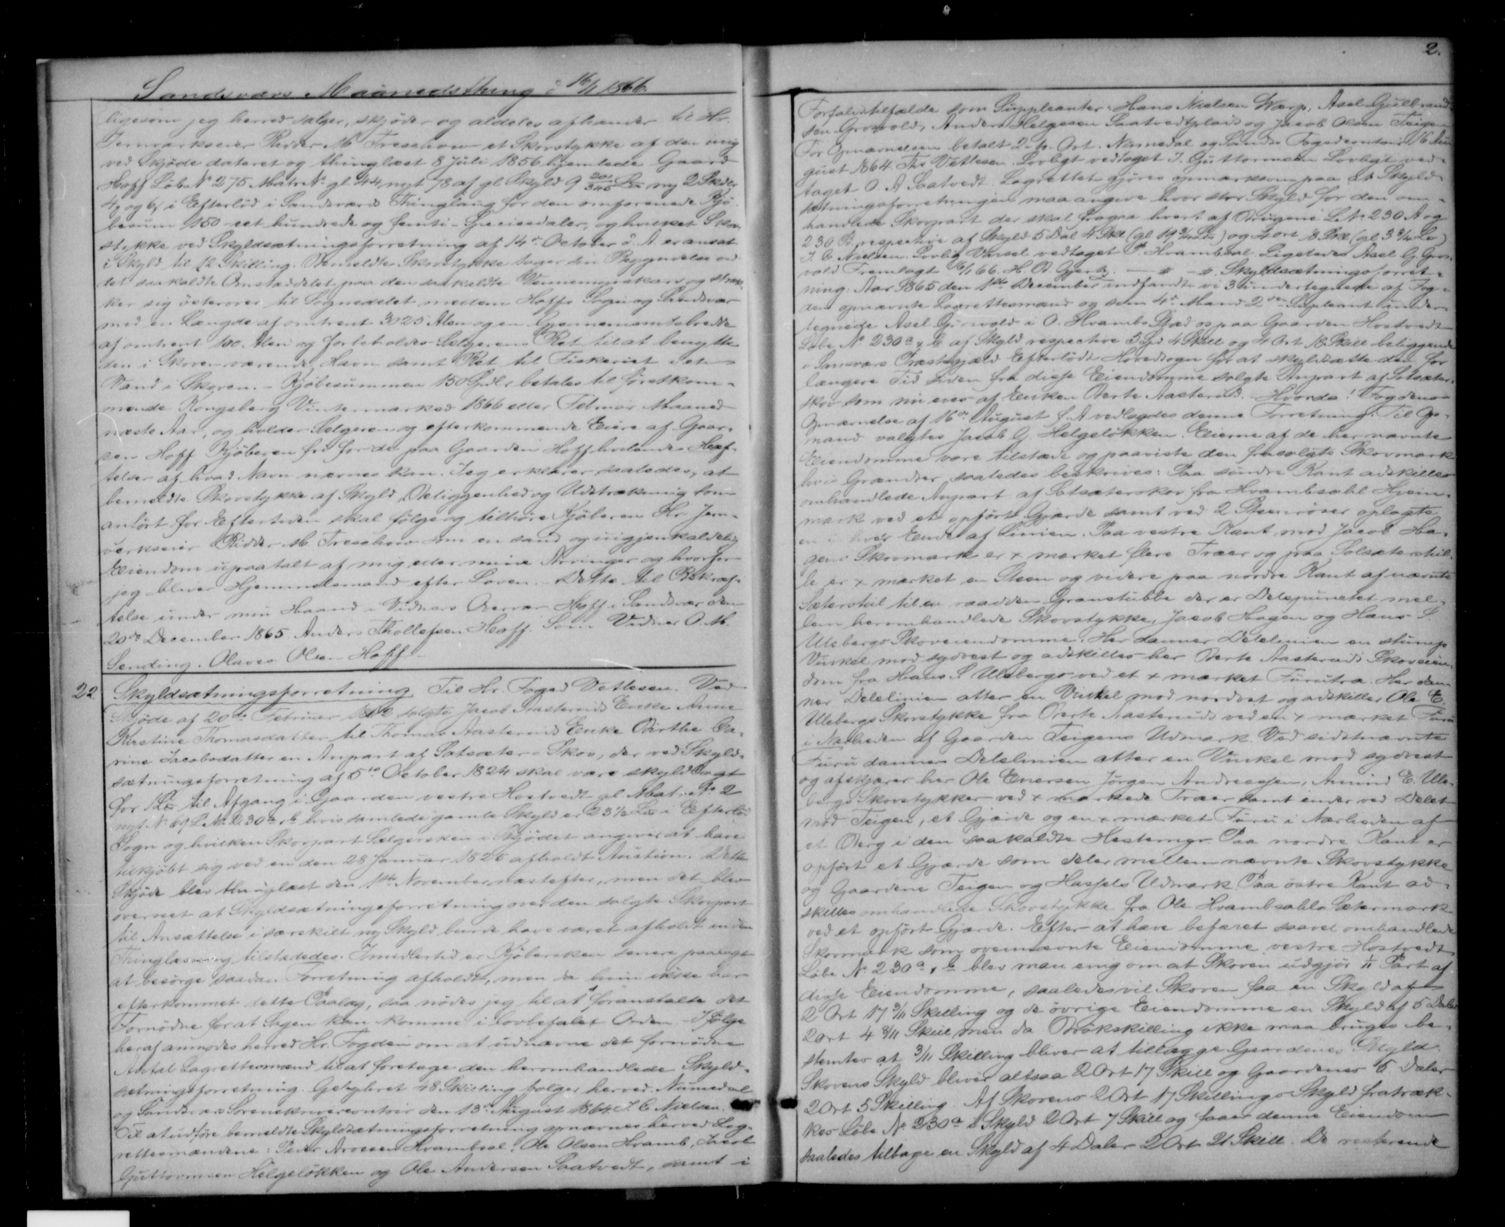 Sandsværs Maanedsthing d 16/1 1866.
ligesom jeg herved sælger, skjøder og aldeles afhænder til Hr.
Jernværkseier Ridder M Treschow et Skovstykke af den mig
ved Skjøde dateret og thinglæst 8 Juli 1856 hjemlede Gaard
Hoff Løbe No 275 Matr No gl 44, nyt 78 af gl Skyld 9 Lpd ny 2 Skdlr
4 og 6 i Efterlød i Sandsværd Thinglaug for den omforenede Kjø-
besum 150 eet hundrede og femti Speciesdaler, og hvilket Skov-
stykke ved Skyldsætningsforretning af 14de October d. A. er ansat
i Skyld til 12 Skilling. Bemeldte Skovstykke tager sin Begyndelse ved
det saakaldte paa den saakaldte og stræk-
ker sig østerover til Sognedelet mellem Hoffs Sogn og Sandsvær
med en Længde af omtrent 3025 Alen og en Gjennemsnitsbredde
af omtrent 100 Alen og forbeholdes Sælgeren Ret til at benytte
den i Skoven værende Havn samt Ret til Fiskeriet i et
Vand i Skoven. Kjøbesummen 150 Spdlr betales til førstkom-
mende Kongsberg Vintermarked 1866 eller Februar Maaned
næste Aar, og holder Sælgeren og efterkommende Eiere af Gaar-
den Hoff Kjøberen fri for de paa Gaarden Hoff hvilende Hæf-
telser af hvad Navn nævnes kan. Jeg erklærer saaledes, at
bemeldte Skovstykke af Skyld, Beliggenhed og Udstrækning som
anført for Eftertiden skal følge og tilhøre Kjøberen Hr. Jern-
værkseier Ridder M. Treschow som en sand og uigjenkaldelig
Eiendom upaatalt af mig eller mine Arvinger og hvorfor
jeg bliver Hjemmelsmand efter Loven. Dette til Bekræf-
telse under min Haand i Vidners Overvær Hoff i Sandsvær den
20de December 1865 Anders Thollefsen Hoff. Som Vidner O. M.
Sending. Olaves Olsen Hoff.
22. Skyldsætningsforretning Til Hr. Foged Vettlesen. Ved
Skjøde af 20de Februar solgte Jacob Aasteruds Enke Anne
Kirstine Thomasdatter til Thomas Aasteruds Enke Birthe Ca-
rine Jacobsdatter en Anpart af Satsæter Skov, der ved Skyld-
sætningsforretning af 5te October 1824 skal være skyldsat
for til Afgang i Gaarden vestre Hostvedt gl Mat. No 2
nyt No 69 L No 230 a, b hvis samlede gamle Skyld er 23½ i Efterløds
Sogn og hvilken Skovpart Sælgersken i Skjødet angiver at have
tilkjøbt sig ved en den 28 Januar 1826 afholdt Auction. Dette
Skjøde blev thinglæst den 1ste November næstefter, men det blev
overseet at Skyldsætningsforretning over den solgte Skovpart
til Ansættelse i særskilt ny Skyld burde have været afholdt inden
Thinglæsning tilstededes. Imidlertid er Kjøbersken senere paalagt
at besørge saadan Forretning afholdt, men da hun ikke har
efterkommet dette Paalæg, saa nødes jeg til at foranstalte det
Fornødne for at Sagen kan komme i lovbefalet Orden. Ifølge
heraf anmodes herved Hr. Fogden om at udnævne det fornødne
Antal Lagrettesmænd til at foretage den heromhandlede Skyld-
sætningsforretning. Gebyhret 48 Skilling følger herved. Numedal
og Sandsvær Sorenskrivercontoir den 13de August 1864 I. C. Nielsen.
Til at udføre bemeldte Skyldsætningsforretning opnævnes herved Lag-
rettesmændene: Peder Arnesen Krambsæl, Ole Olsen Kramb, Jacob
Guttormsen Helgeløkken og Ole Andersen Saatvedt, samt i
2.
Forfaldstilfælde som Suppleanter: Hans Nielsen Warp, Axel Gulbrand-
sen Grosvold, Anders Helgesen Saatvedtplads og Jacob Olsen Teigen
For Opnævnelsen betalt 2 - to Ort. Numedal og Sandsv. Fogedcontoir 16 Au-
gust 1864 Thr Vettlesen. Lovligt vedtaget J. Guttormsen Lovligt ved-
taget O. A. Saatvedt. Lagrettet gjøres opmærksom paa at Skyld-
sætningsforretningen maa angive hvor stor Skyld for den om-
handlede Skovpart der skal fragaa hvert af Brugene L. No 230 A og
230 B, respective af Skyld 5 Dal 4 Ski (gl og 4 ort 18 Ski (gl 3
J. C. Nielsen. Lovlig Varsel vedtaget P. Krambsæl. Ligeledes Axel G. Gros-
vold Fremlagt 16/1 66. H. O. Gjerdg. — # — # Skyldsætningsforret-
ning. Aar 1865 den 1ste December indfandt vi 3 undertegnede af Fog-
den opnævnte Lagrettesmænd og som 4de Mand 2den Supleant under-
tegnede Axel Grosvold i O. Krambs Sted os paa Gaarden Hostvedt
Løbe No 230 a, b af Skyld respective 5 Spd 4 Skill og 4 Ort 18 Skill beliggende
i Sandsværs Præstegjæld Efterløds Hovedsogn for at skyldsætte den for
længere Tid siden fra disse Eiendomme solgte Anpart af Satsæter-
skov som nu eies af Enken Berte Aasterud. Hvorda! Fogdens
Opnævnelse af 16de August f. A. vedlagdes denne Forretning. Til Op-
mand valgtes Jacob G. Helgeløkken. Eierne af de her nævnte
Eiendomme vare tilstede og paaviste den frasolgte Skovmark
hvis Grændser saaledes beskrives: Paa søndre Kant adskilles
omhandlede Anpart af Satsæterskov fra Krambsæbl Hjem-
mark ved et opført Gjærde samt ved 2 Steenrøser oplagte
en i hver Ende af Linien. Paa vestre Kant mod Jacob Ha-
gens Skovmark er × mærket flere Træer og paa Satsæterstil-
le er × mærket en Steen og videre paa nordre Kant af nævnte
Sæterstil til en raadden Granstubbe der er Delepunctet mel-
lem heromhandlede Skovstykke, Jacob Hagen og Hans S
Ulebergs Skoveiendomme. Her danner Delelinien en stump
Vinkel mod sydvest og adskilles her Berte Aasteruds Skoveien-
dom fra Hans S. Ulebergs ved et × mærket Furutræ. Her dan-
ner Delelinien atter en Vinkel mod nordvest og adskiller Ole E.
Ulebergs Skovstykke fra Berte Aasteruds ved en × mærket Furu
i Nærheden af Gaarden Teigens Udmark. Ved sidstnævnte
Furu danner Delelinien atter en Vinkel mod sydvest
og afskjærer her Ole Evensen, Jørgen Andreassen, Amund E. Ule-
bergs Skovstykker ved × mærkede Træer samt ender ved Delet
mod Teigen, et Gjærde og en × mærket Furu i Nærheden af
et Berg i den saakaldte Hestemyr Paa nordre Kant er
opført et Gjærde som deler mellem nævnte Skovstykke
og Gaardene Teigen og Hassels Udmark. Paa østre Kant ad-
skilles omhandlede Skovstykke fra Ole Krambsæbls Sætermark
ved et opført Gjærde. Efter at have befaret saavel omhandlede
Skovmark som ovennævnte Eiendomme vestre Hostvedt
Løbe No 230 a, b blev man enig om at Skoven udgjør 1/11 Part af
disse Eiendomme, saaledes vil Skoven faa en Skyld af
2 Ort 17 3/11 Skilling og de øvrige Eiendomme en Skyld af 5 Daler
2 ort 4 8/11 Skill men da Brøkskilling ikke maa bruges be-
stemtes at 3/11 Skilling bliver at tillægge Gaardenes Skyld.
Skovens Skyld bliver altsaa 2 Ort 17 Skill og Gaardenes 5 Daler
2 Ort 5 Skilling. Af Skovens 2 Ort 17 Skillings Skyld fratræk-
kes Løbe No 230 a's Skyld 2 Ort 7 Skill og faar denne Eiendom
saaledes tilbage en Skyld af 4 Daler 2 Ort 21 Skill. De resterende